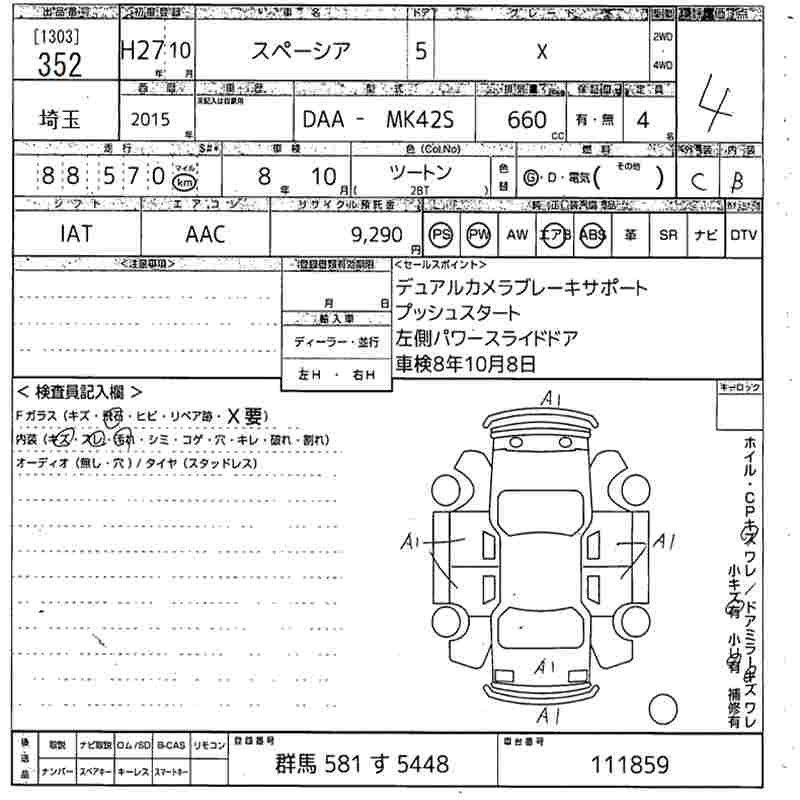 出品番号 初年登録 車名 ドア グレード 駆動 評価点
[1303]
352 H27 年 10 月 スペーシア 5 X 2WD ・ 4WD 4
西暦 車歴 型式 排気量 保証書 定員
未記入は自家用
埼玉 2015 年 DAA - MK42S 660 CC 有・無 4 名
走行 S#* 車検 色 (Col.No) 燃料 外装 内装
88570 マイル km 8 年 10 月 ツートン ( 2BT ) 色替 G・D・電気( その他 ) C B
シフト エアコン リサイクル預託金
IAT AAC 9,290 円 PS PW AW エアB ABS 革 SR ナビ DTV
<注意事項> 登録書類有効期限 <セールスポイント>
月 日 デュアルカメラブレーキサポート
輸入車 プッシュスタート
ディーラー・並行 左側パワースライドドア
左H ・ 右H 車検8年10月8日
< 検査員記入欄 > キーロック
Fガラス (キズ・飛石・ヒビ・リペア跡・X要)
内装 (キズ・スレ・汚れ・シミ・コゲ・穴・キレ・破れ・割れ)
オーディオ (無し・穴) / タイヤ (スタッドレス)
A1
A1 A1
A1
A1
ホイル・CPキズ ワレ / ドアミラーキズ ワレ
小キズ有 小凹有 補修有
後送品 取説 ナビ取説 ロム/SD B-CAS リモコン 登録番号 車台番号
ナンバー スペアキー キーレス スマートキー 群馬 581 す 5448 111859